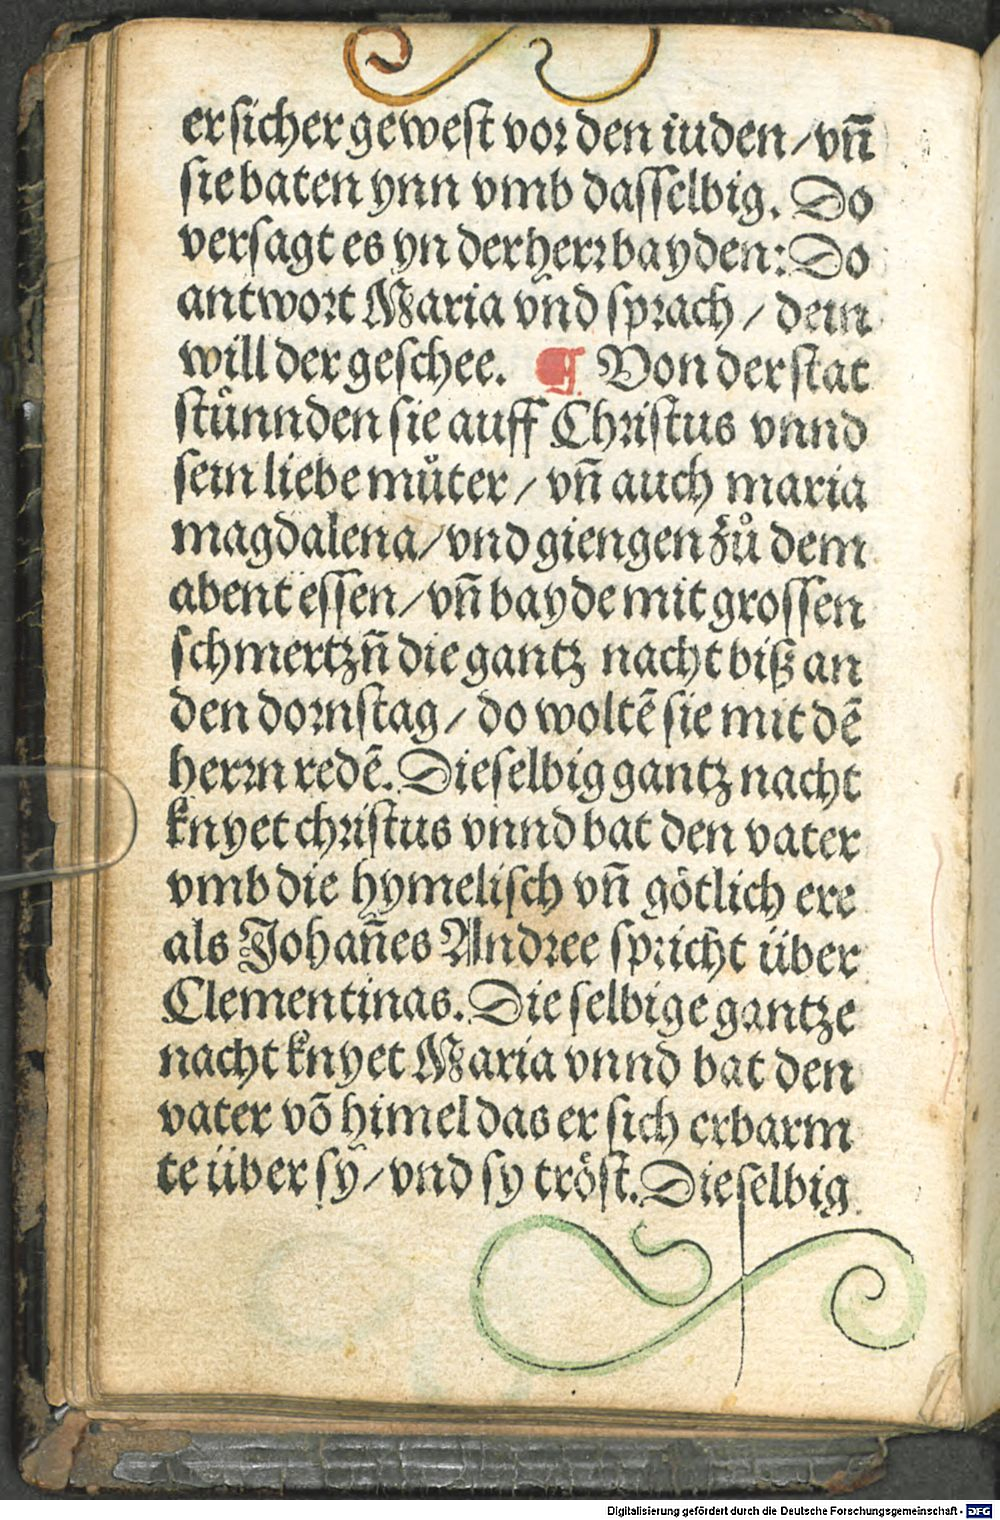 er sicher gewest vor den iuden / vnñ
sie baten ynn vmb dasselbig. Do
versagt es yn der herr bayden: Do
antwort Maria vnd sprach / dein
will der geschee. ¶ Von der stat
stůnnden sie auff Christus vnnd
sein liebe můter / vñ auch maria
magdalena / vnd giengen zů dem
abent essen / vñ bayde mit grossen
schmertzñ die gantz nacht biß an
den dornstag / do woltẽ sie mit dẽ
herrn redẽ. Dieselbig gantz nacht
knyet christus vnnd bat den vater
vmb die hymelisch vñ götlich ere
als Johañes Andree spricht über
Clementinas. Die selbige gantze
nacht knyet Maria vnnd bat den
vater võ himel das er sich erbarm
te über sy / vnd sy tröst. Dieselbig
Digitalisierung gefördert durch die Deutsche Forschungsgemeinschaft - DFG